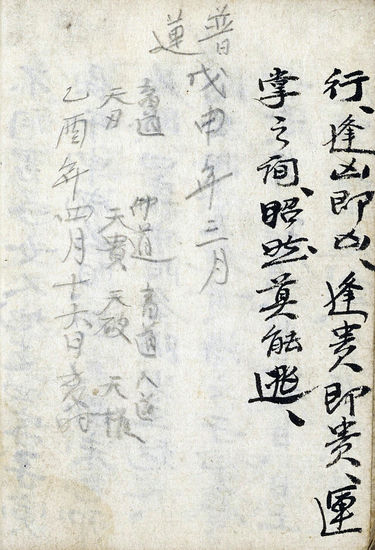 行、逢凶即凶、逢贵即贵、運
掌之间、昭然莫能逃、
普戊申年三月
蓮
畜道 仲道 畜道 人道
天刃 天貴 天破 天
乙酉年四月十六日亥时